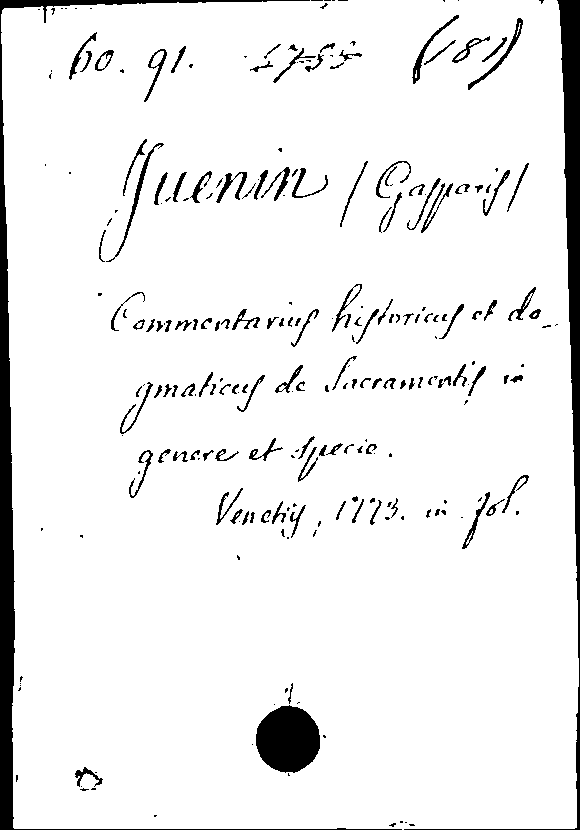 60. 91. 5755 (181)
Juenin / Gasparis /
Commentarius historicus et do-
gmaticus de Sacramentis in
genere et specie.
Venetijs, 1773. in fol.